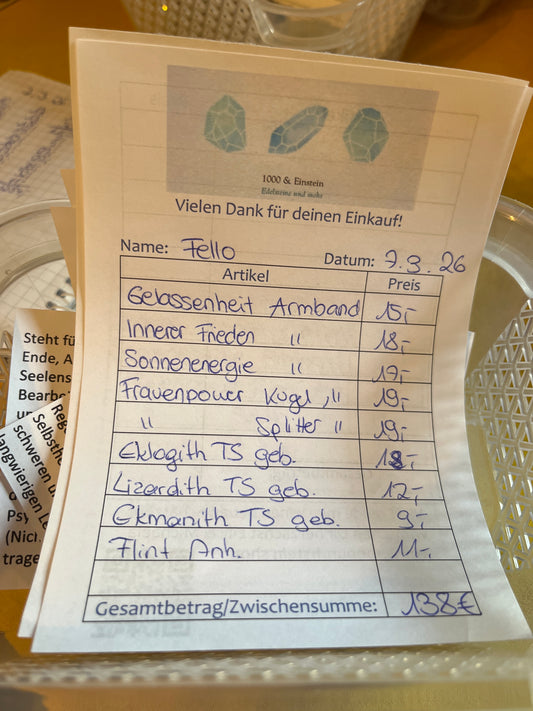 1000 & Einstein
Edelsteine und mehr
Vielen Dank für deinen Einkauf!
Name: Fello Datum: 7.3.26
Artikel Preis
Gelassenheit Armband 15,-
Innerer Frieden " 18,-
Sonnenenergie " 17,-
Frauenpower Kugel," 19,-
" Splitter " 19,-
Eklogith TS geb. 18,-
Lizardith TS geb. 12,-
Ekmanith TS geb. 9,-
Flint Anh. 11,-
Gesamtbetrag/Zwischensumme: 138€
Steht
Ende,
schweren
langwierigen